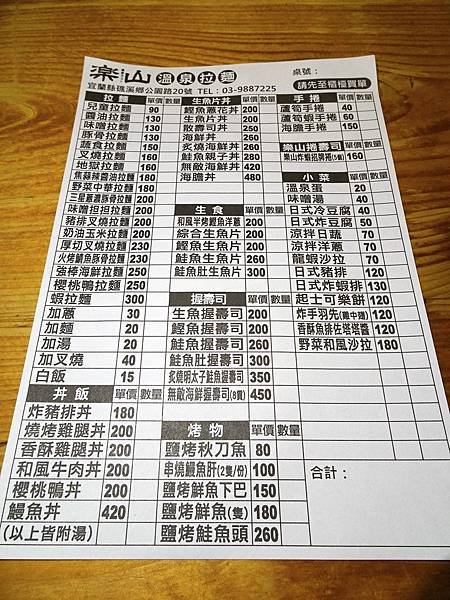 樂山溫泉拉麵
桌號：
宜蘭縣礁溪鄉公園路20號 TEL：03-9887225
請先至櫃檯買單
拉麵 單價 數量
兒童拉麵 90
醬油拉麵 130
味噌拉麵 130
豚骨拉麵 130
蔬食拉麵 150
叉燒拉麵 160
地獄拉麵 160
焦蒜辣醬油拉麵 180
野菜中華拉麵 180
三星蔥濃豚骨拉麵 200
味噌担担拉麵 200
豬排叉燒拉麵 200
奶油玉米拉麵 200
厚切叉燒拉麵 230
火烤鯛魚豚骨拉麵 230
強棒海鮮拉麵 250
櫻桃鴨拉麵 250
蝦拉麵 300
加蔥 30
加麵 20
加湯 20
加叉燒 40
白飯 15
丼飯 單價 數量
炸豬排丼 180
燒烤雞腿丼 200
香酥雞腿丼 200
和風牛肉丼 200
櫻桃鴨丼 200
鰻魚丼 420
(以上皆附湯)
生魚片丼 單價 數量
鰹魚蔥花丼 200
生魚片丼 200
散壽司丼 250
海鮮丼 260
炙燒海鮮丼 260
鮭魚親子丼 280
無敵海鮮丼 420
海膽丼 480
生食 單價 數量
和風半烤鰹魚洋蔥 200
綜合生魚片 200
鰹魚生魚片 200
鮭魚生魚片 200
鮭魚肚生魚片 300
握壽司 單價 數量
生魚握壽司 200
鰹魚握壽司 200
鮭魚握壽司 260
鮭魚肚握壽司 300
炙燒明太子鮭魚握壽司 350
無敵海鮮握壽司(8貫) 450
烤物 單價 數量
鹽烤秋刀魚 80
串燒鰻魚肝(2隻/份) 100
鹽烤鮮魚下巴 150
鹽烤鮮魚(隻) 180
鹽烤鮭魚頭 260
手捲 單價 數量
蘆筍手捲 40
蘆筍蝦手捲 60
海膽手捲 150
樂山捲壽司 單價 數量
樂山炸蝦招牌捲(5個) 160
小菜 單價 數量
溫泉蛋 20
味噌湯 40
日式冷豆腐 40
日式炸豆腐 50
涼拌日蔬 70
涼拌洋蔥 70
龍蝦沙拉 70
日式豬排 120
日式炸蝦排 130
起士可樂餅 120
炸手羽先(雞中翅) 120
香酥魚排佐塔塔醬 120
野菜和風沙拉 180
合計：